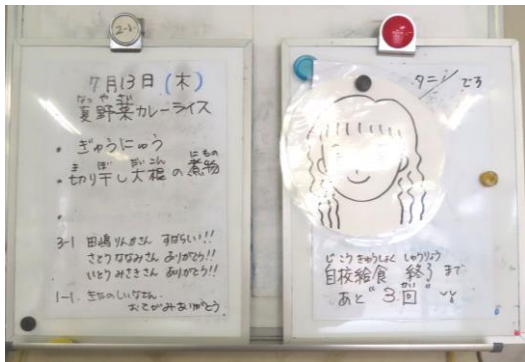 2-1
7月13日(木)
なつやさい
夏野菜カレーライス
・ぎゅうにゅう
きりぼしだいこんにもの
・切り干し大根の煮物
・
3-1 田嶋りんかさん すばらしい!!
さとうななみさん ありがとう!!
いとうみさきさん ありがとう!!
1-1. さん
おてがみありがとう
です
じこうきゅうしょく しゅうりょう
自校給食 終了まで
かい
あと"3回"